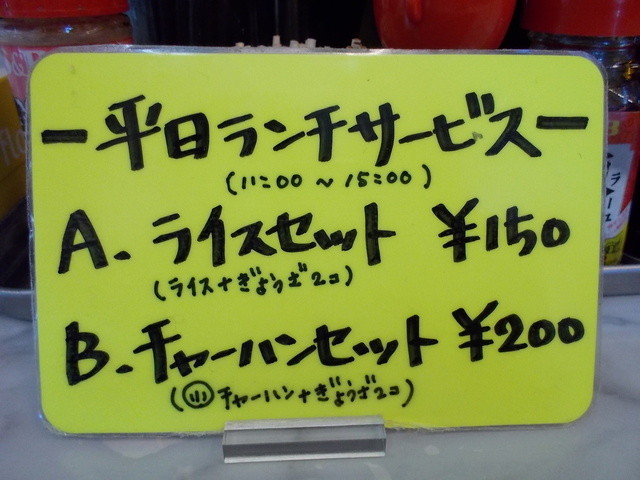 ー平日ランチサービスー
(11:00 ~ 15:00)
A. ライスセット ¥150
(ライス+ぎょうざ2コ)
B. チャーハンセット ¥200
(小チャーハン+ぎょうざ2コ)